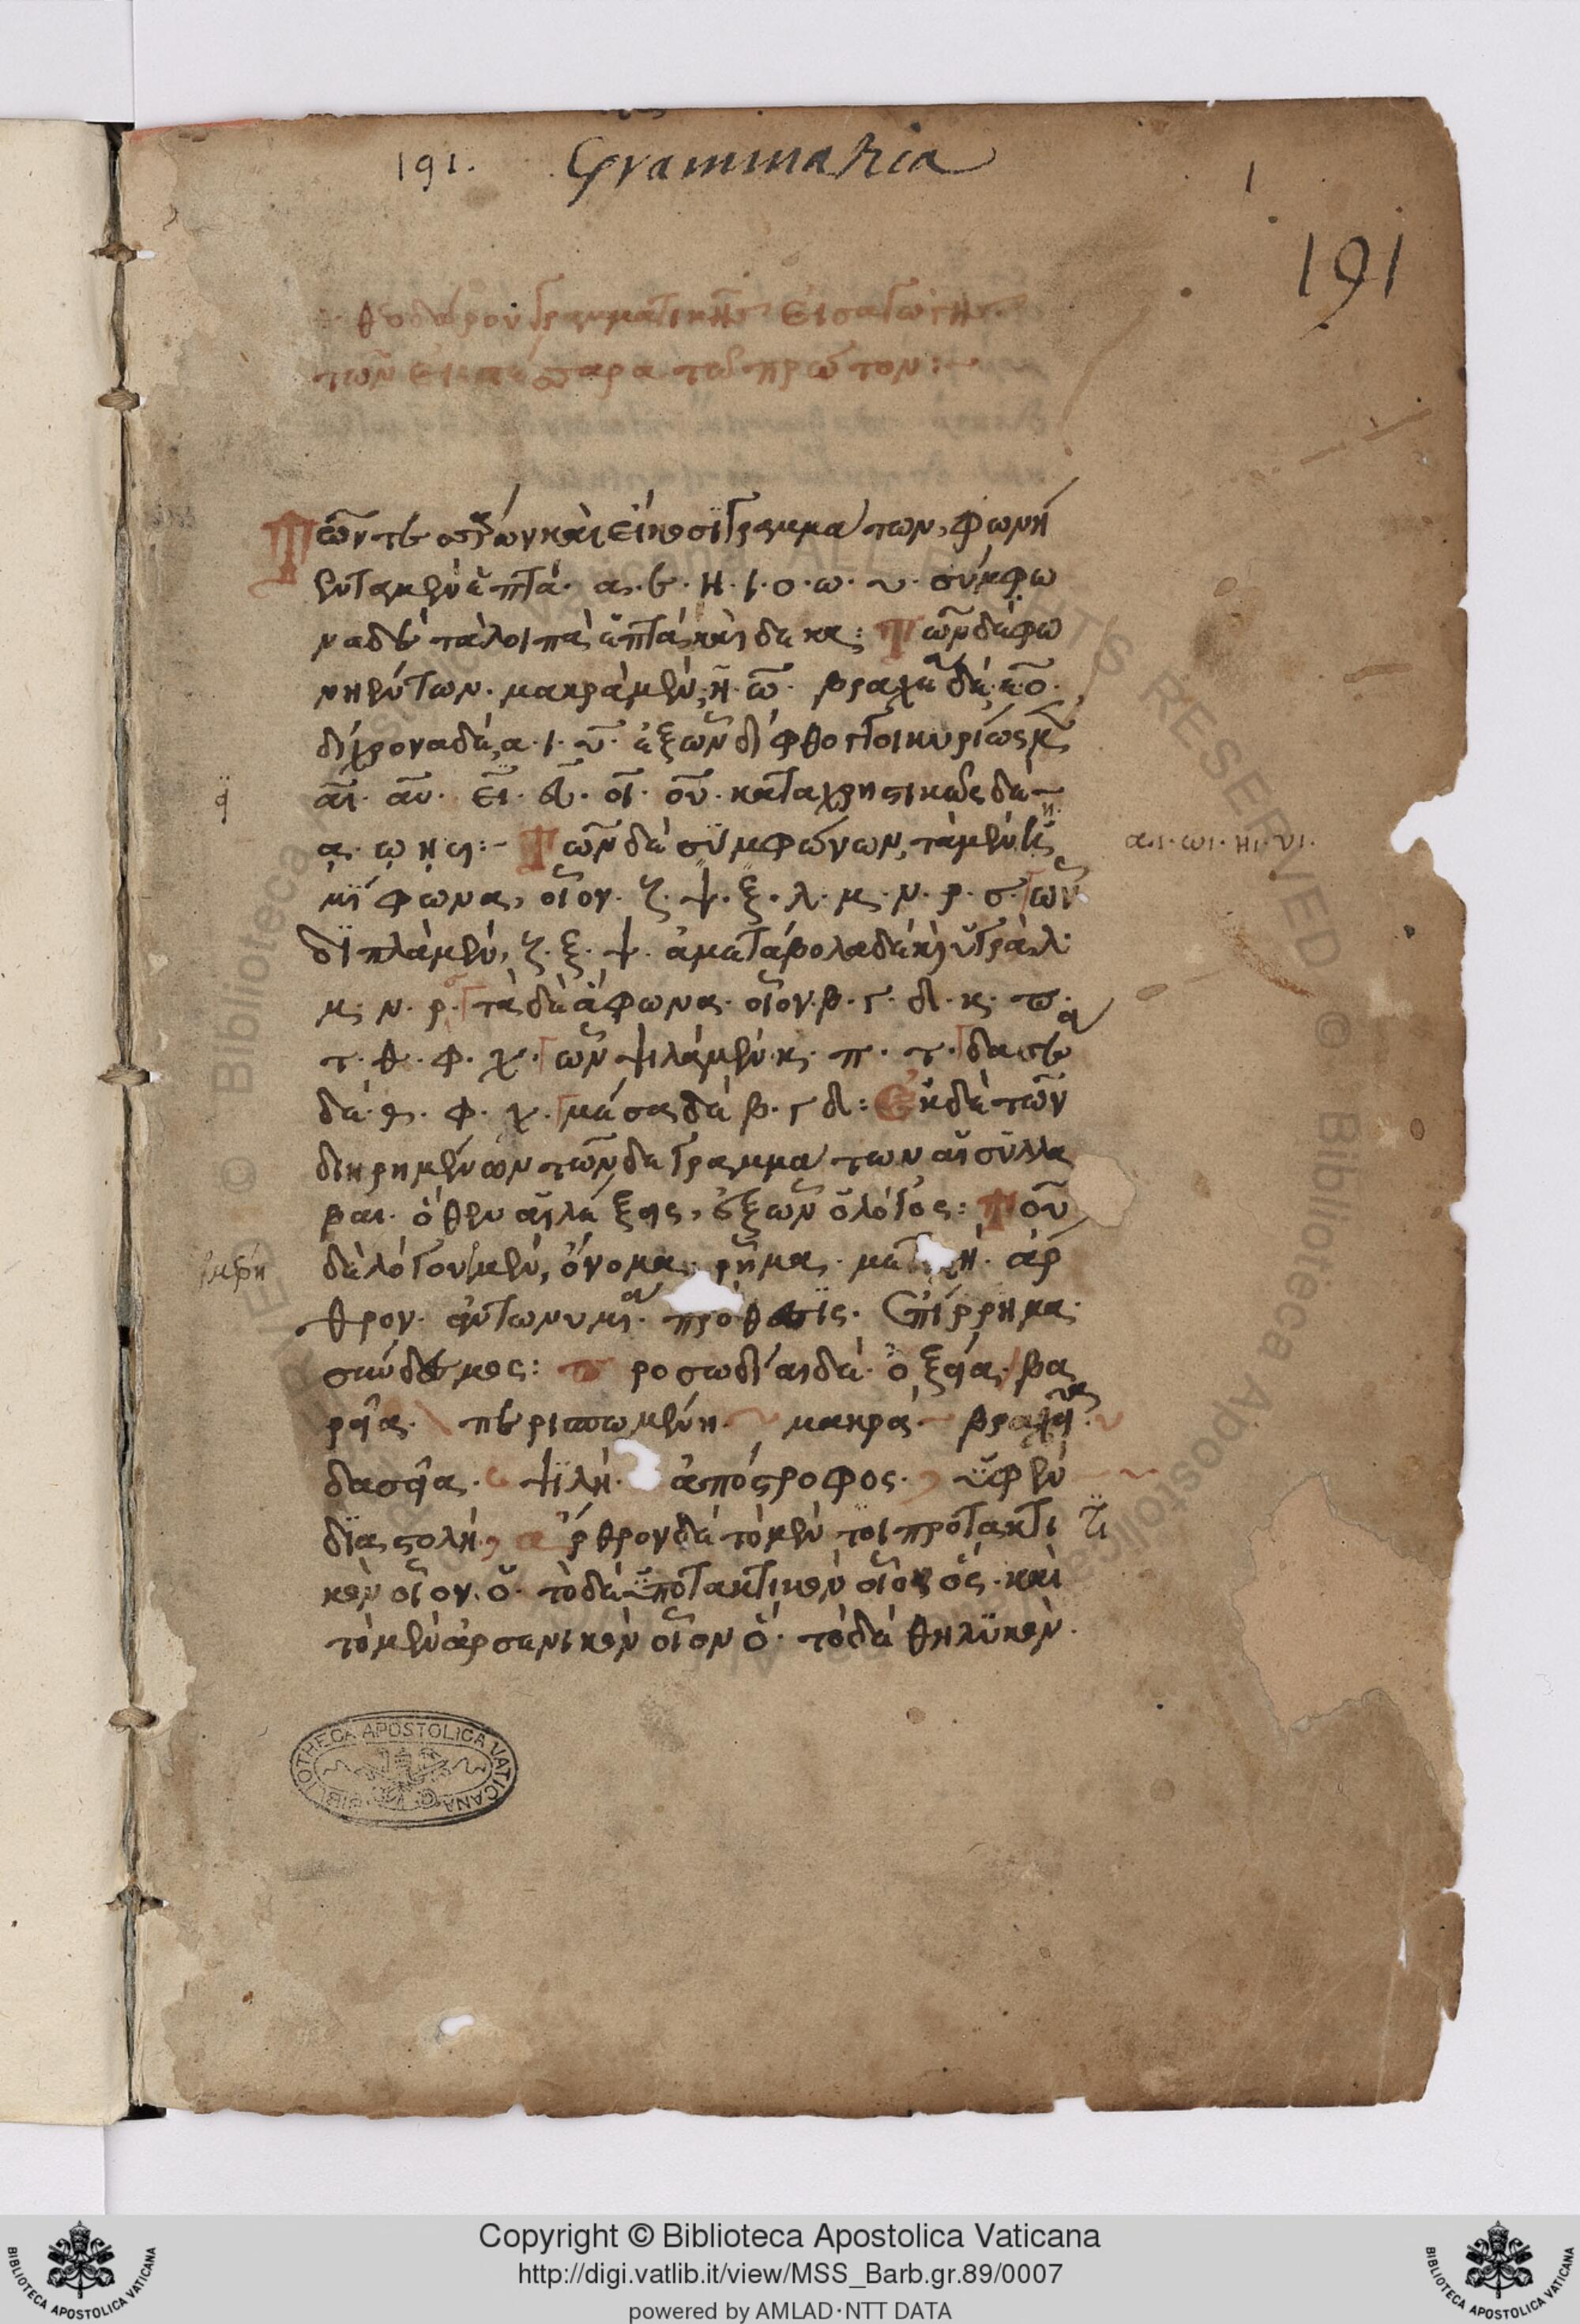 191. Grammatica 1
191
θεοδώρου γραμματικῆς εἰσαγωγῆς
τῶν εἰς τέσσαρα τὸ πρῶτον:
Τῶν τεσσάρων καὶ εἴκοσι γραμμάτων, φωνή
εντα μὲν ἑπτά· α· ε· η· ι· ο· ω· υ· σύμφω
να δὲ τὰ λοιπὰ ἑπτὰ καὶ δεκα: Τῶν δὲ φω
νηέντων· μακρὰ μὲν, η· ω· βραχέα δὲ, ε· ο·
δίχρονα δὲ, α· ι· υ· ἐξ ὧν δίφθογγοι κυρίως μὲν
αι· αυ· ει· ευ· οι· ου· καταχρηστικῶς δὲ
ᾳ· ῳ ῃ υι: Τῶν δὲ συμφώνων, τὰ μὲν
αι· ωι· ηι· υι·
ἡμίφωνα, οἷον· ζ· ψ· ξ· λ· μ· ν· ρ· σ· ὧν
διπλὰ μὲν, ζ· ξ· ψ· ἀμετάβολα δὲ καὶ ὑγρὰ λ·
μ· ν· ρ· τὰ δὲ ἄφωνα· οἷον· β· γ· δ· κ· π·
τ· θ· φ· χ· ὧν ψιλὰ μὲν· κ· π· τ· δασέα
δὲ· θ· φ· χ· μέσα δὲ β· γ δ: Ἐκ δὲ τῶν
διηρημένων τῶνδε γραμμάτων αἱ συλλα
βαι· ὅθεν αἱ λέξεις, ἐξ ὧν ὁ λόγος: Τοῦ
ἐμέρη
δὲ λόγου μὲν, ὄνομα· ῥῆμα· μετοχή· ἄρ
θρον· ἀντωνυμία· πρόθεσις· ἐπίρρημα·
σύνδεσμος: προσωδίαι δὲ· ὀξεῖα· βα
ρεῖα· περισπωμένη· μακρά· βραχεῖα·
δασεῖα· ψιλή· ἀπόστροφος· ὑφὲν
διαστολή, ἄρθρον δὲ τὸ μὲν τοι προτακτι
κὸν οἷον· ὁ· τὸ δὲ ὑποτακτικὸν οἷον ὅς· καὶ
τὸ μὲν ἀρσενικὸν οἷον ὁ· τὸ δὲ θηλυκὸν·
BIBLIOTHECA APOSTOLICA VATICANA
Copyright © Biblioteca Apostolica Vaticana
http://digi.vatlib.it/view/MSS_Barb.gr.89/0007
powered by AMLAD·NTT DATA
BIBLIOTECA APOSTOLICA VATICANA
BIBLIOTECA APOSTOLICA VATICANA